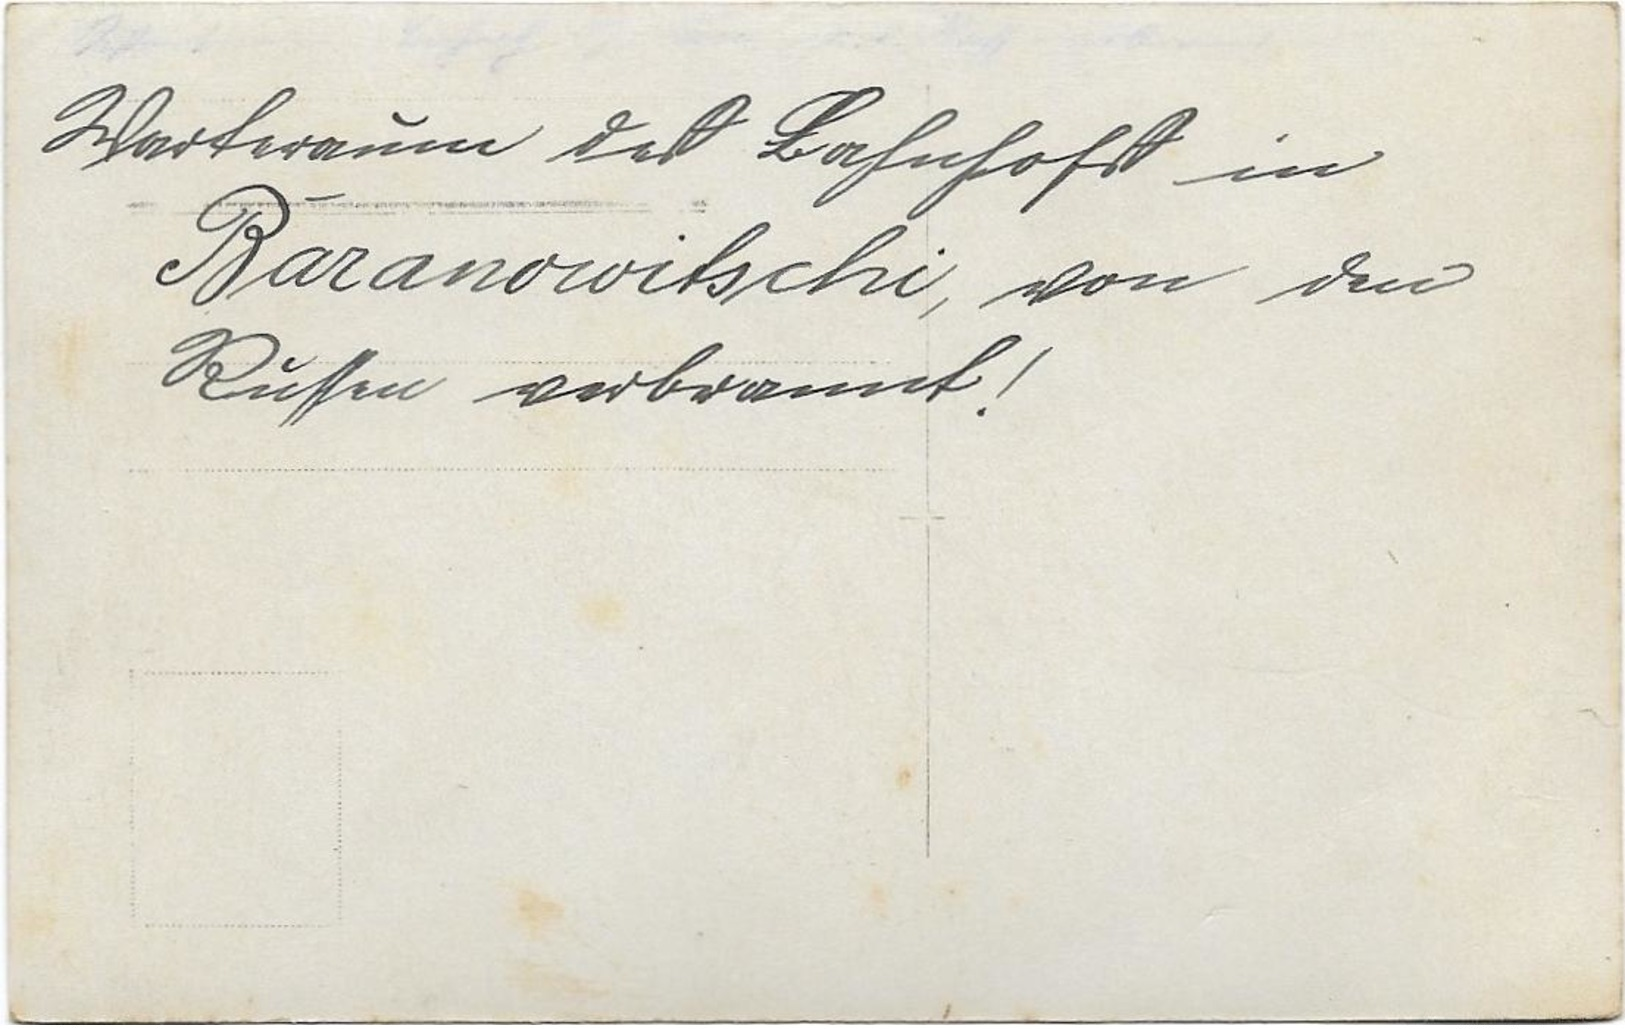 Warteraum des Bahnhofs in
Baranowitschi, von den
Russen verbrannt!